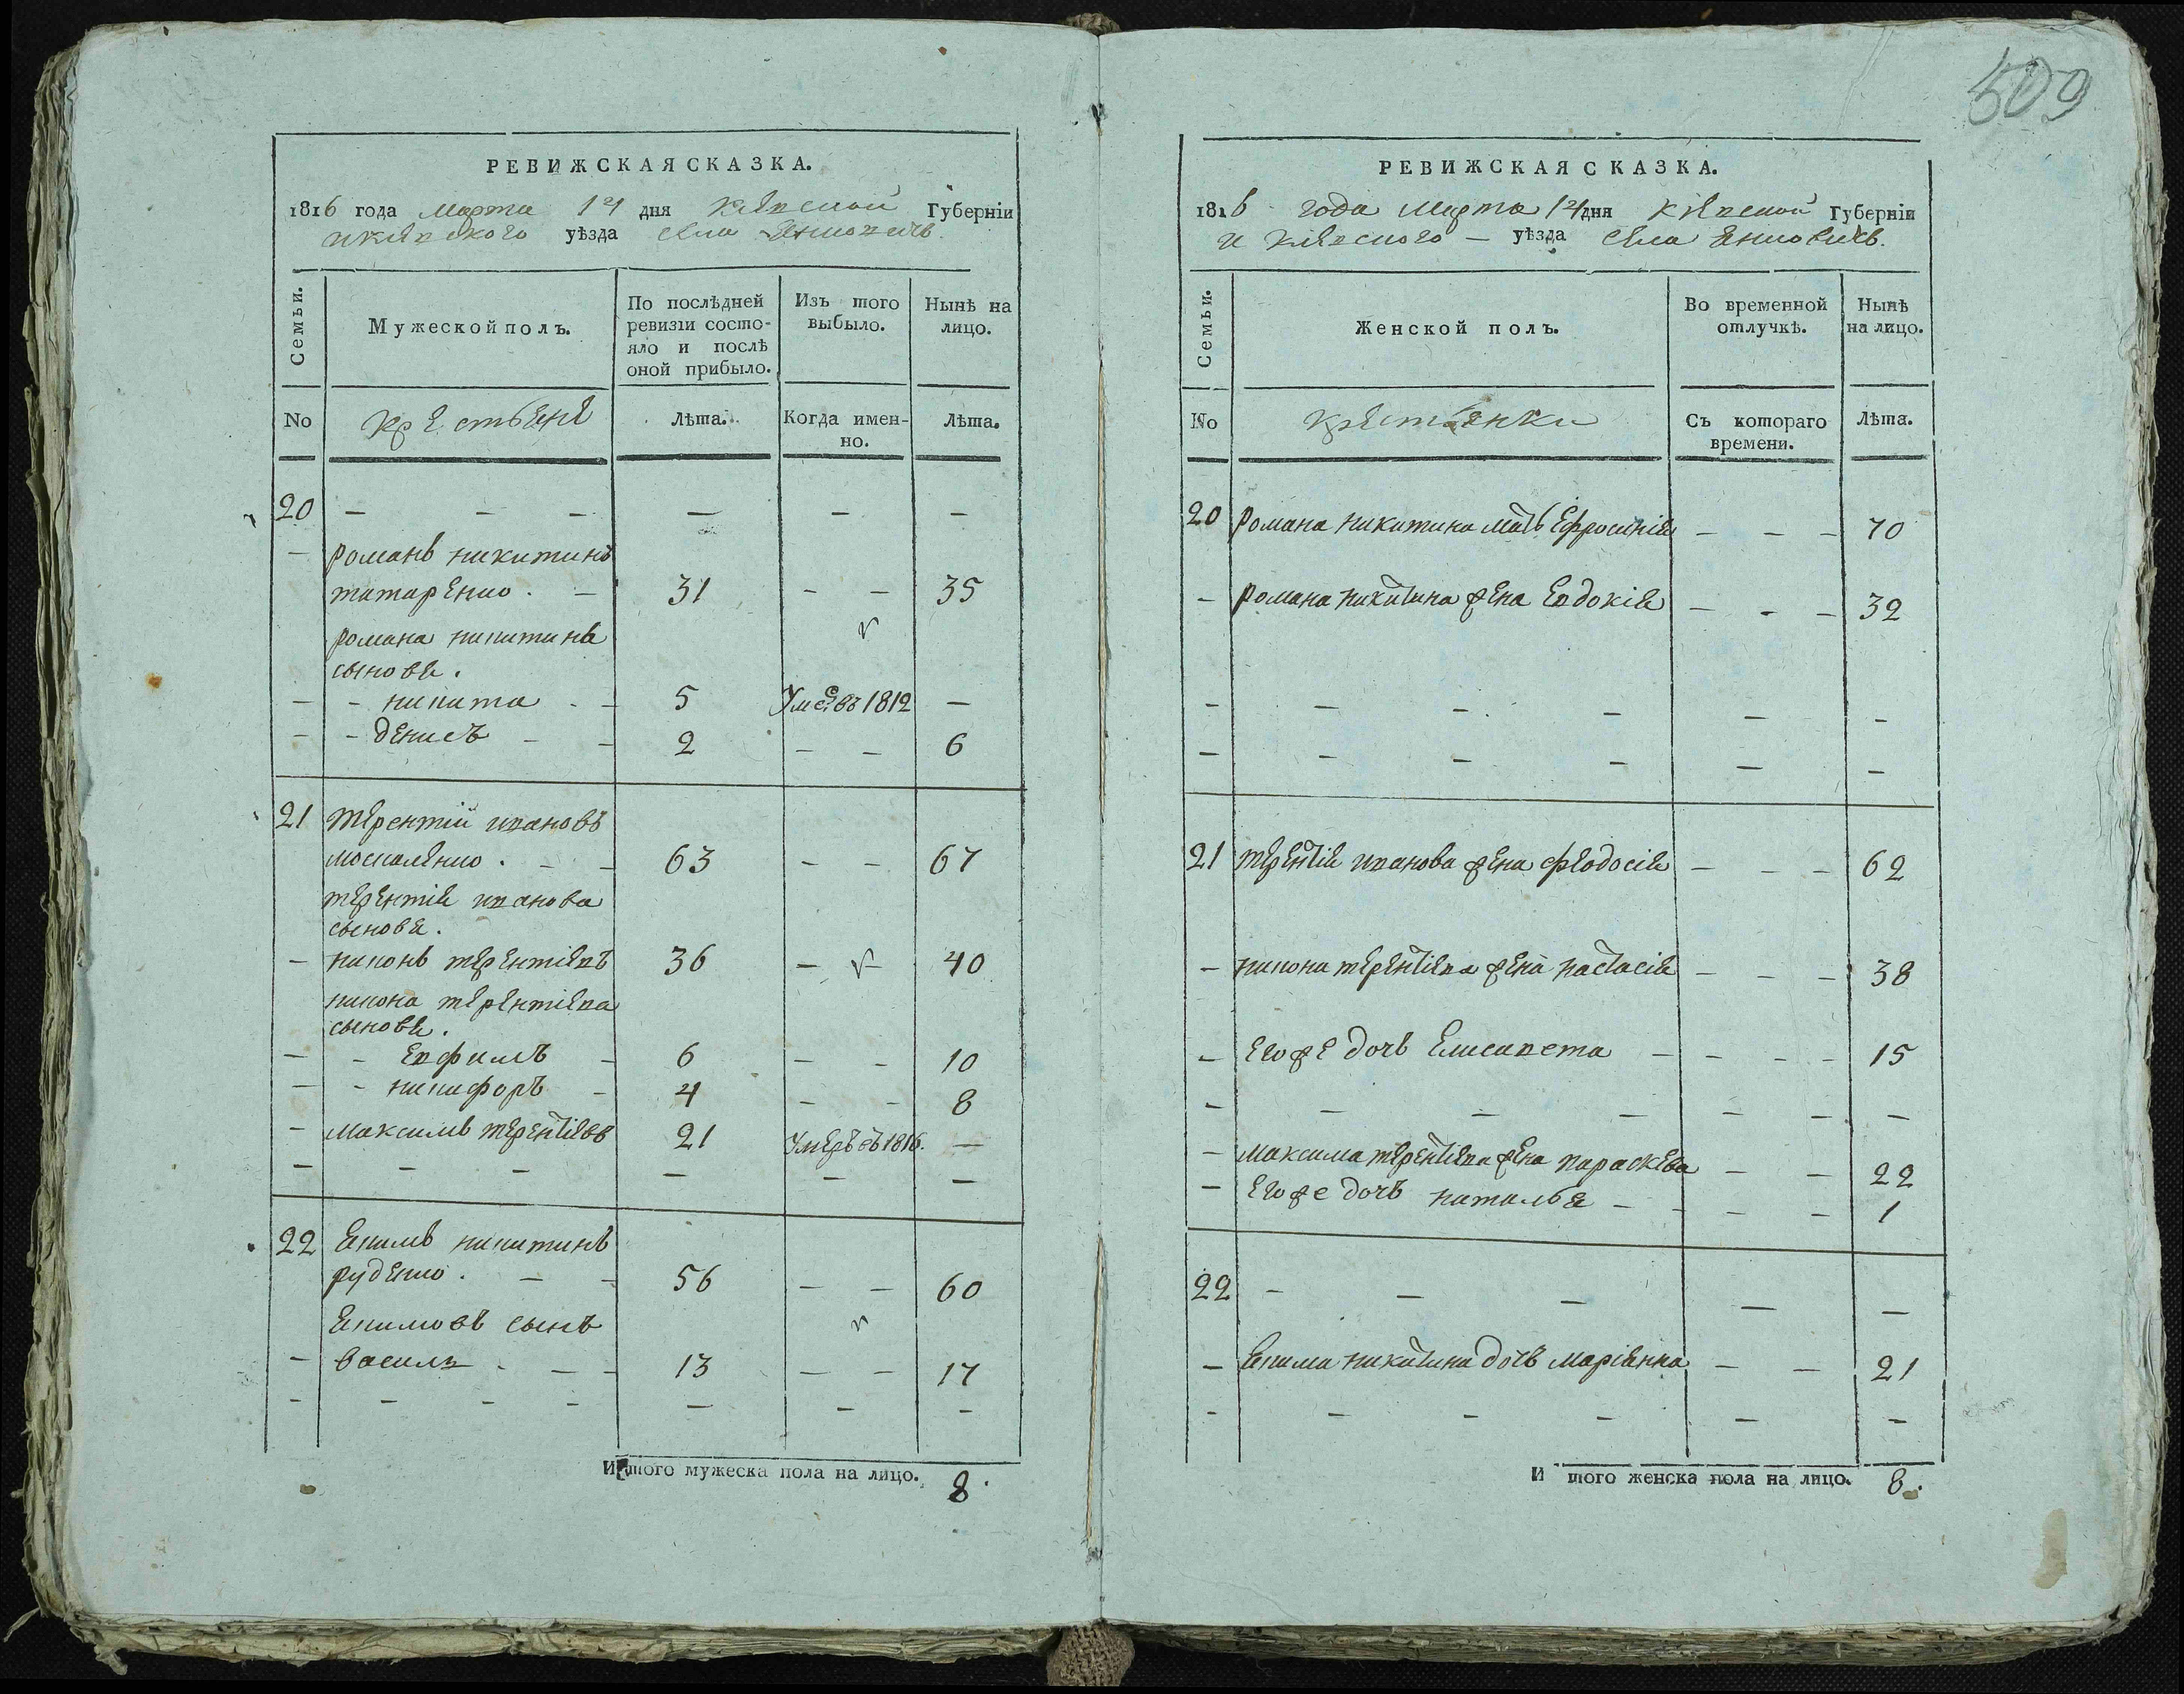 509
РЕВИЖСКАЯ СКАЗКА.
1816 года Марта 14 дня Кіевской Губерніи
и Кіевского уѣзда села Янковичъ
Семьи.
Мужеской полъ.
По послѣдней ревизіи состояло и послѣ оной прибыло.
Изъ того выбыло.
Нынѣ на лицо.
No
крестьяне
Лѣта.
Когда именно.
Лѣта.
20 — — — — — —
— романъ никитинъ
татаренко . — 31 — — 35
романа никитина
сыновья .
— - никита - - 5 Умре въ 1812 —
— - денисъ - - 2 — — 6
21 терентій ивановъ
москаленко . — — 63 — — 67
терентія иванова
сыновя .
— никонъ терентіевъ 36 — — 40
никона терентіева
сыновя .
— - Евфимъ - 6 — — 10
— - никифоръ - 4 — — 8
— максимъ терентіевъ 21 Умеръ въ 1816. —
— — — — — —
22 Якимъ никитинъ
руденко . — — 56 — — 60
Якимовъ сынъ
— василь . — — 13 — — 17
- - - - — — —
Итого мужеска пола на лицо. 8.
РЕВИЖСКАЯ СКАЗКА.
1816 года Марта 14 дня Кіевской Губерніи
и Кіевского — уѣзда села Янковичъ.
Семьи.
Женской полъ.
Во временной отлучкѣ.
Нынѣ на лицо.
No
крестьянки
Съ котораго времени.
Лѣта.
20 романа никитина мать Ефросинія — — — 70
— романа никитина жена Евдокія — — — 32
— — — — — —
— — — — — —
21 терентія иванова жена феодосія — — — 62
— никона терентіева жена настасія — — — 38
— Его же дочь Елисавета — — — — 15
— — — — — — —
— максима терентіева жена параскева — — 22
— Его же дочь наталья — — — — 1
22 — — — — —
— Якима никитина дочь маріянна — — 21
— — — — — —
Итого женска пола на лицо. 8.